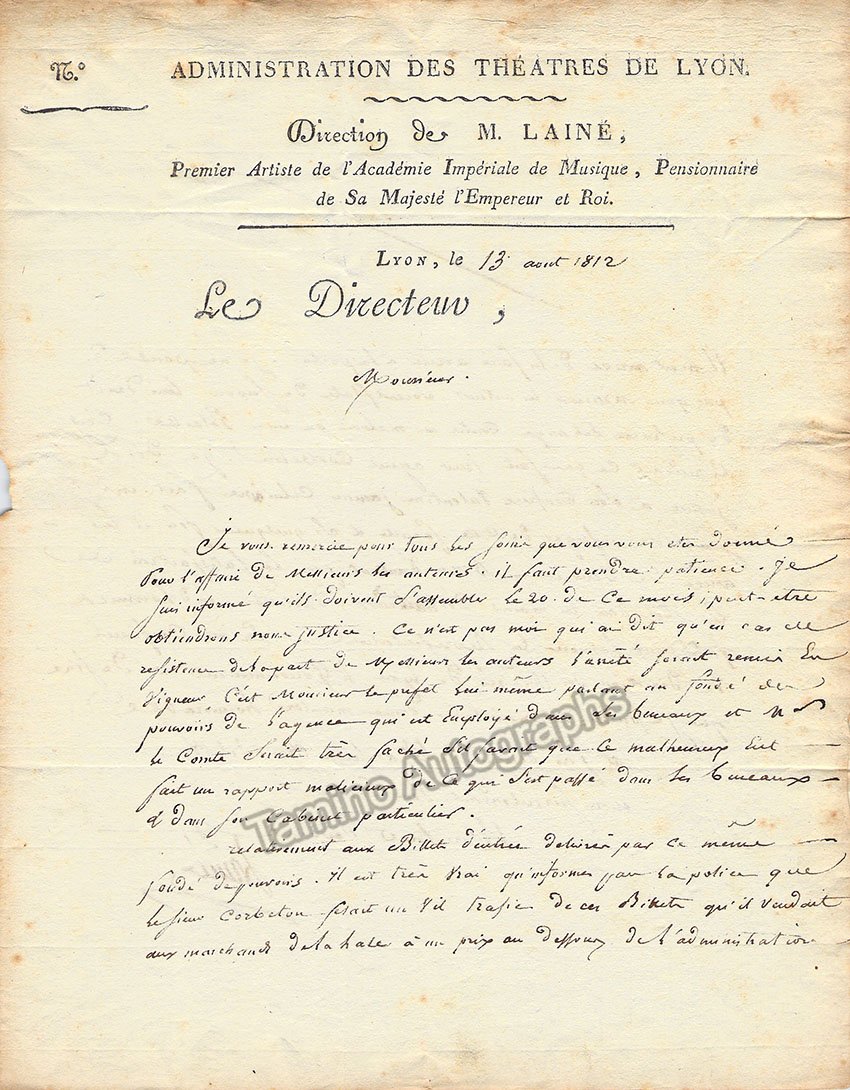 N.º
ADMINISTRATION DES THÉATRES DE LYON.
Direction de M. LAINÉ,
Premier Artiste de l'Académie Impériale de Musique, Pensionnaire
de Sa Majesté l'Empereur et Roi.
LYON, le 13 aout 1812
Le Directeur,
Monsieur.
Je vous remercie pour tous les soins que vous vous etes donné
pour l'affaire de Messieurs les auteurs. il faut prendre patience. Je
suis informé qu'ils doivent s'assembler le 20. de ce mois, peut-etre
obtiendrons nous justice. Ce n'est pas moi qui ai dit qu'en cas de
resistence de la part de Messieurs les auteurs l'arrêté serait remis en
vigueur C'est Monsieur le prefet lui même parlant au fondé de
pouvoirs de l'agence qui est Employé dans les bureaux et Mr
le Comte serait très faché s'il savait que ce malheureux eut
fait un rapport malicieux de ce qui s'est passé dans les bureaux
& dans son Cabinet particulier.
relativement aux Billets d'entrée délivrés par ce même
fondé de pouvoirs. Il est très vrai qu'informé par la police que
le sieur Corbeton fesait un vil trafic de ces Billets qu'il vendait
aux marchands de la hale à un prix au dessous de l'administration
Tamino Autographs